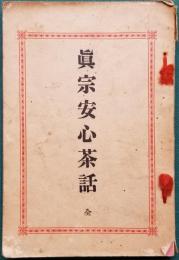 眞宗安心茶話
全